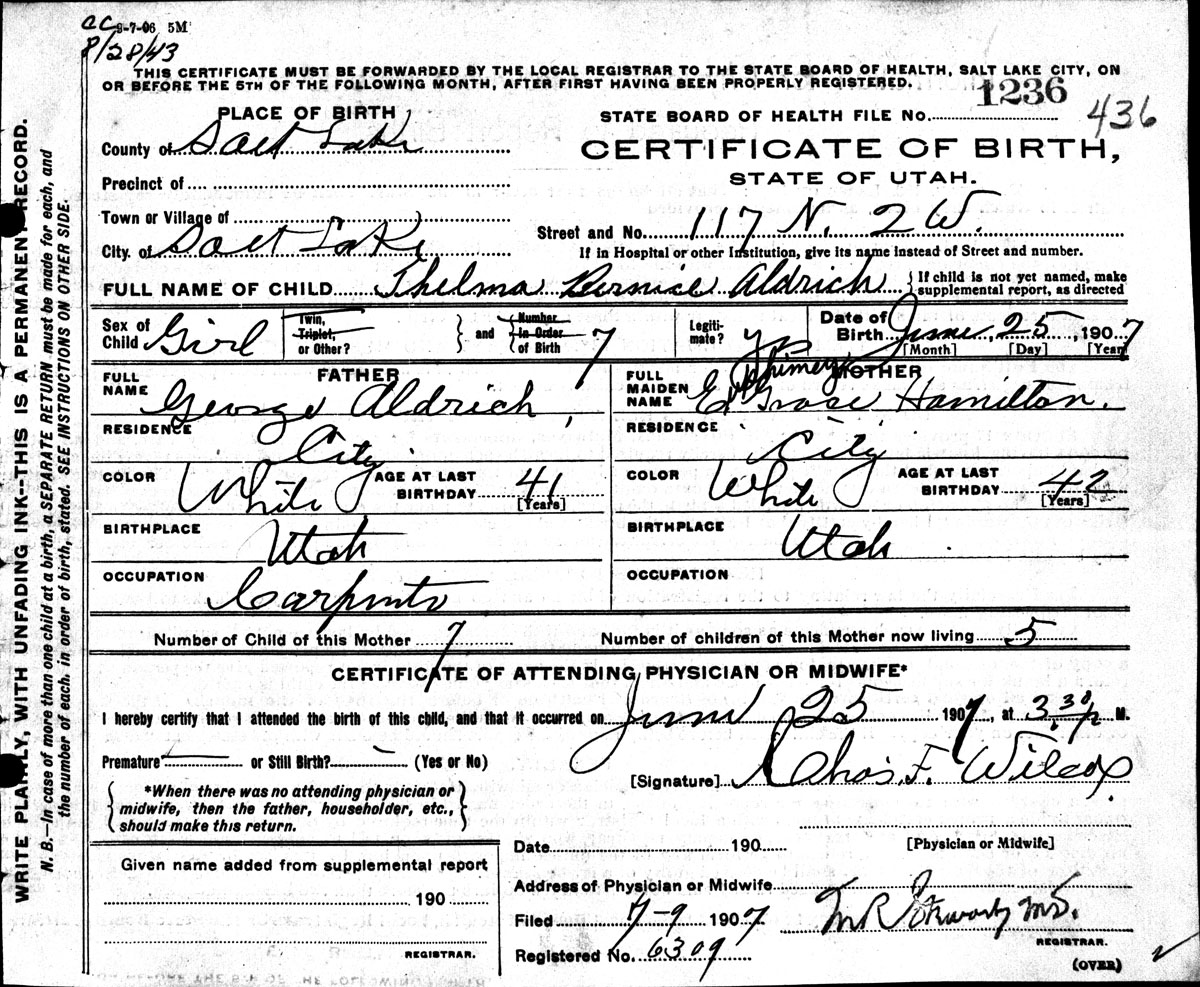 CC 9-7-06 5M
8/28/43
THIS CERTIFICATE MUST BE FORWARDED BY THE LOCAL REGISTRAR TO THE STATE BOARD OF HEALTH, SALT LAKE CITY, ON
OR BEFORE THE 5TH OF THE FOLLOWING MONTH, AFTER FIRST HAVING BEEN PROPERLY REGISTERED.
PLACE OF BIRTH
STATE BOARD OF HEALTH FILE No. 1236 436
County of Salt Lake
CERTIFICATE OF BIRTH,
STATE OF UTAH.
Precinct of
Town or Village of
Street and No. 117 N. 2 W.
City of Salt Lake
If in Hospital or other Institution, give its name instead of Street and number.
FULL NAME OF CHILD Thelma Bernice Aldrich { If child is not yet named, make
supplemental report, as directed
Sex of Child Girl
Twin, Triplet, or Other? } and { Number In Order of Birth 7
Legiti-mate? yes
Date of Birth June 25, 1907
[Month] [Day] [Year]
FATHER
FULL NAME George Aldrich
RESIDENCE City
COLOR White AGE AT LAST BIRTHDAY 41 [Years]
BIRTHPLACE Utah
OCCUPATION Carpenter
MOTHER
FULL MAIDEN NAME Hamilton.
RESIDENCE City
COLOR White AGE AT LAST BIRTHDAY 42 [Years]
BIRTHPLACE Utah
OCCUPATION
Number of Child of this Mother 7 Number of children of this Mother now living 5
CERTIFICATE OF ATTENDING PHYSICIAN OR MIDWIFE*
I hereby certify that I attended the birth of this child, and that it occurred on June 25 1907, at 3 30 P. M.
Premature — or Still Birth? — (Yes or No)
[Signature] Chas. F. Wilcox.
{ *When there was no attending physician or
midwife, then the father, householder, etc.,
should make this return. }
[Physician or Midwife]
Date 190
Given name added from supplemental report
190
REGISTRAR.
Address of Physician or Midwife
Filed 7-9 1907 M.D.
REGISTRAR.
Registered No. 6309
(OVER)
WRITE PLAINLY, WITH UNFADING INK--THIS IS A PERMANENT RECORD.
N. B.—In case of more than one child at a birth, a SEPARATE RETURN must be made for each, and
the number of each, in order of birth, stated. SEE INSTRUCTIONS ON OTHER SIDE.